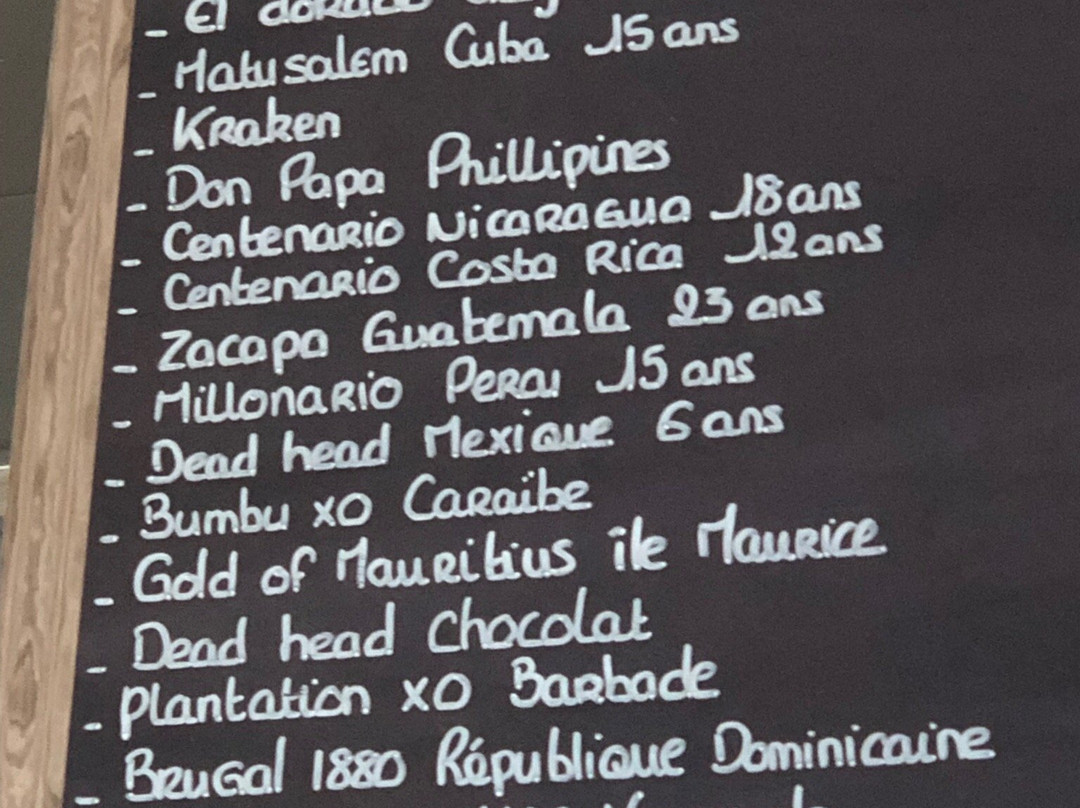 - El dorado
- Matusalem Cuba 15 ans
- Kraken
- Don Papa Phillipines
- Centenario Nicaragua 18 ans
- Centenario Costa Rica 12 ans
- Zacapa Guatemala 23 ans
- Millonario Perou 15 ans
- Dead head Mexique 6 ans
- Bumbu XO Caraïbe
- Gold of Mauritius île Maurice
- Dead head Chocolat
- Plantation XO Barbade
- Brugal 1880 République Dominicaine